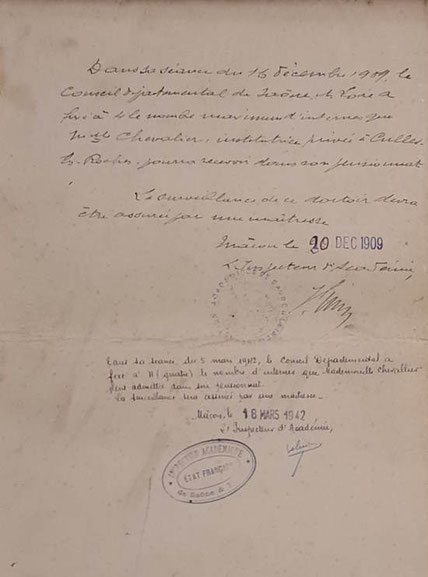 Dans sa séance du 16 décembre 1909, le
Conseil départemental de Saône & Loire a
fixé à 4 le nombre maximum d'internes que
Melle Chevalier, institutrice privée à Culles-
les-Roches, pourra recevoir dans son pensionnat
La surveillance de ce dortoir devra
être assurée par une maîtresse
Mâcon le 20 DEC 1909
L'Inspecteur d'Académie,
Dans sa séance du 5 mars 1942, le Conseil Départemental a
fixé à 4 (quatre) le nombre d'internes que Mademoiselle Chevallier
peut admettre dans son pensionnat.
La surveillance sera assurée par une maîtresse.
Mâcon, le 18 MARS 1942
L'Inspecteur d'Académie,
INSPECTION ACADÉMIQUE
ÉTAT FRANÇAIS
de Saône & L.